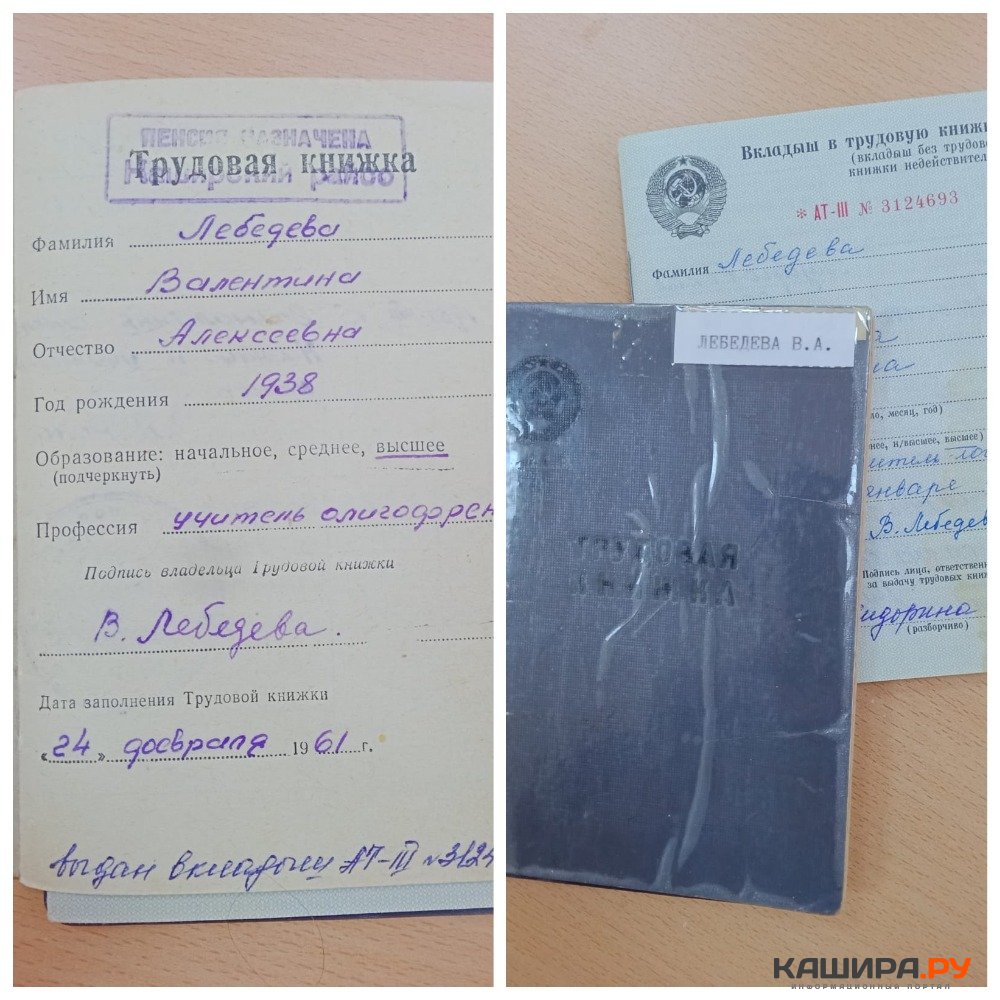 ПЕНСИЯ НАЗНАЧЕНА
Трудовая книжка
Фамилия Лебедева
Имя Валентина
Отчество Алексеевна
Год рождения 1938
Образование: начальное, среднее, высшее
(подчеркнуть)
Профессия учитель олигофрен
Подпись владельца Трудовой книжки
В. Лебедева.
Дата заполнения Трудовой книжки
«24» февраля 1961 г.
выдан вкладыш АТ-III №3124
Вкладыш в трудовую книжк
(вкладыш без трудово
книжки недействител
* АТ-III № 3124693
Фамилия Лебедева
на
ло, месяц, год)
нее, н/высшее, высшее)
итель
январе
В. Лебедев
Подпись лица, ответствен
за выдачу трудовых книж
идорина
(разборчиво)
ЛЕБЕДЕВА В.А.
КАШИРА.РУ
ИНФОРМАЦИОННЫЙ ПОРТАЛ